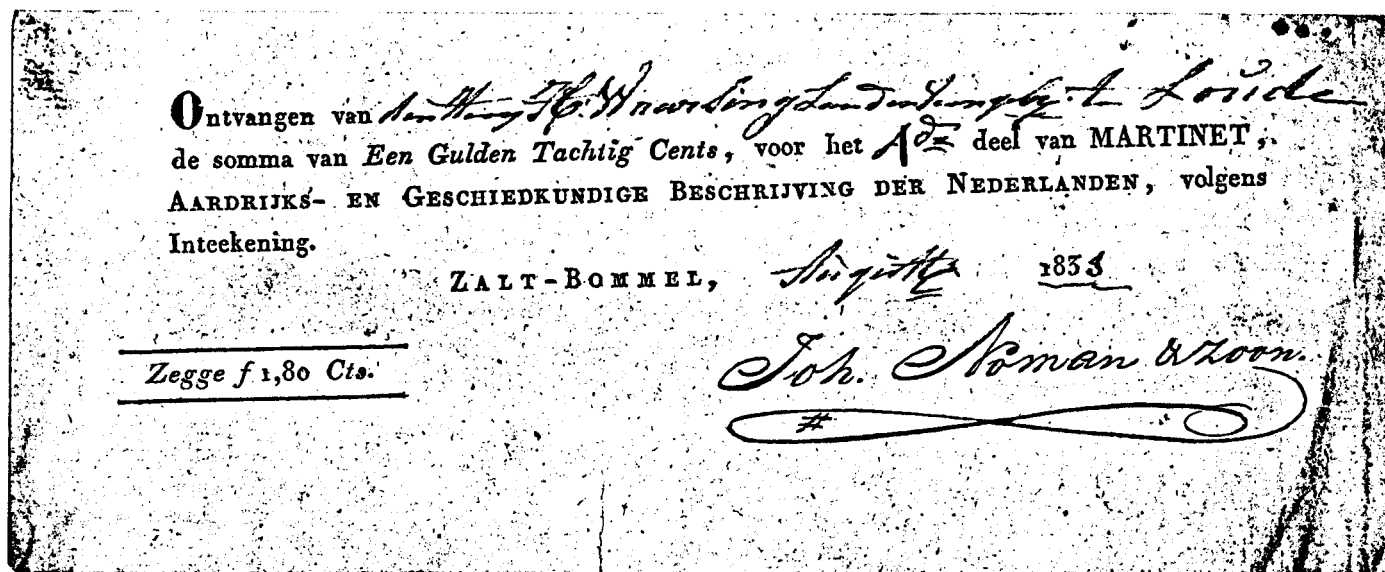 Ontvangen van den Heer H. Waarsing Landentengby. te Loude
de somma van Een Gulden Tachtig Cents, voor het 1de deel van MARTINET,
AARDRIJKS- EN GESCHIEDKUNDIGE BESCHRIJVING DER NEDERLANDEN, volgens
Inteekening.
ZALT-BOMMEL, Augustus 1833
Zegge f 1,80 Cts.
Joh. Noman & Zoon.